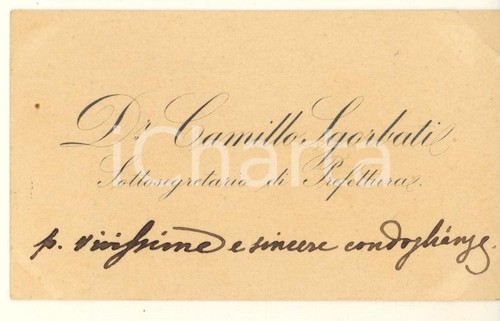 Dr. Camillo Sgorbati
Sottosegretario di Prefettura
p. vivissime e sincere condoglienze.
iCharta